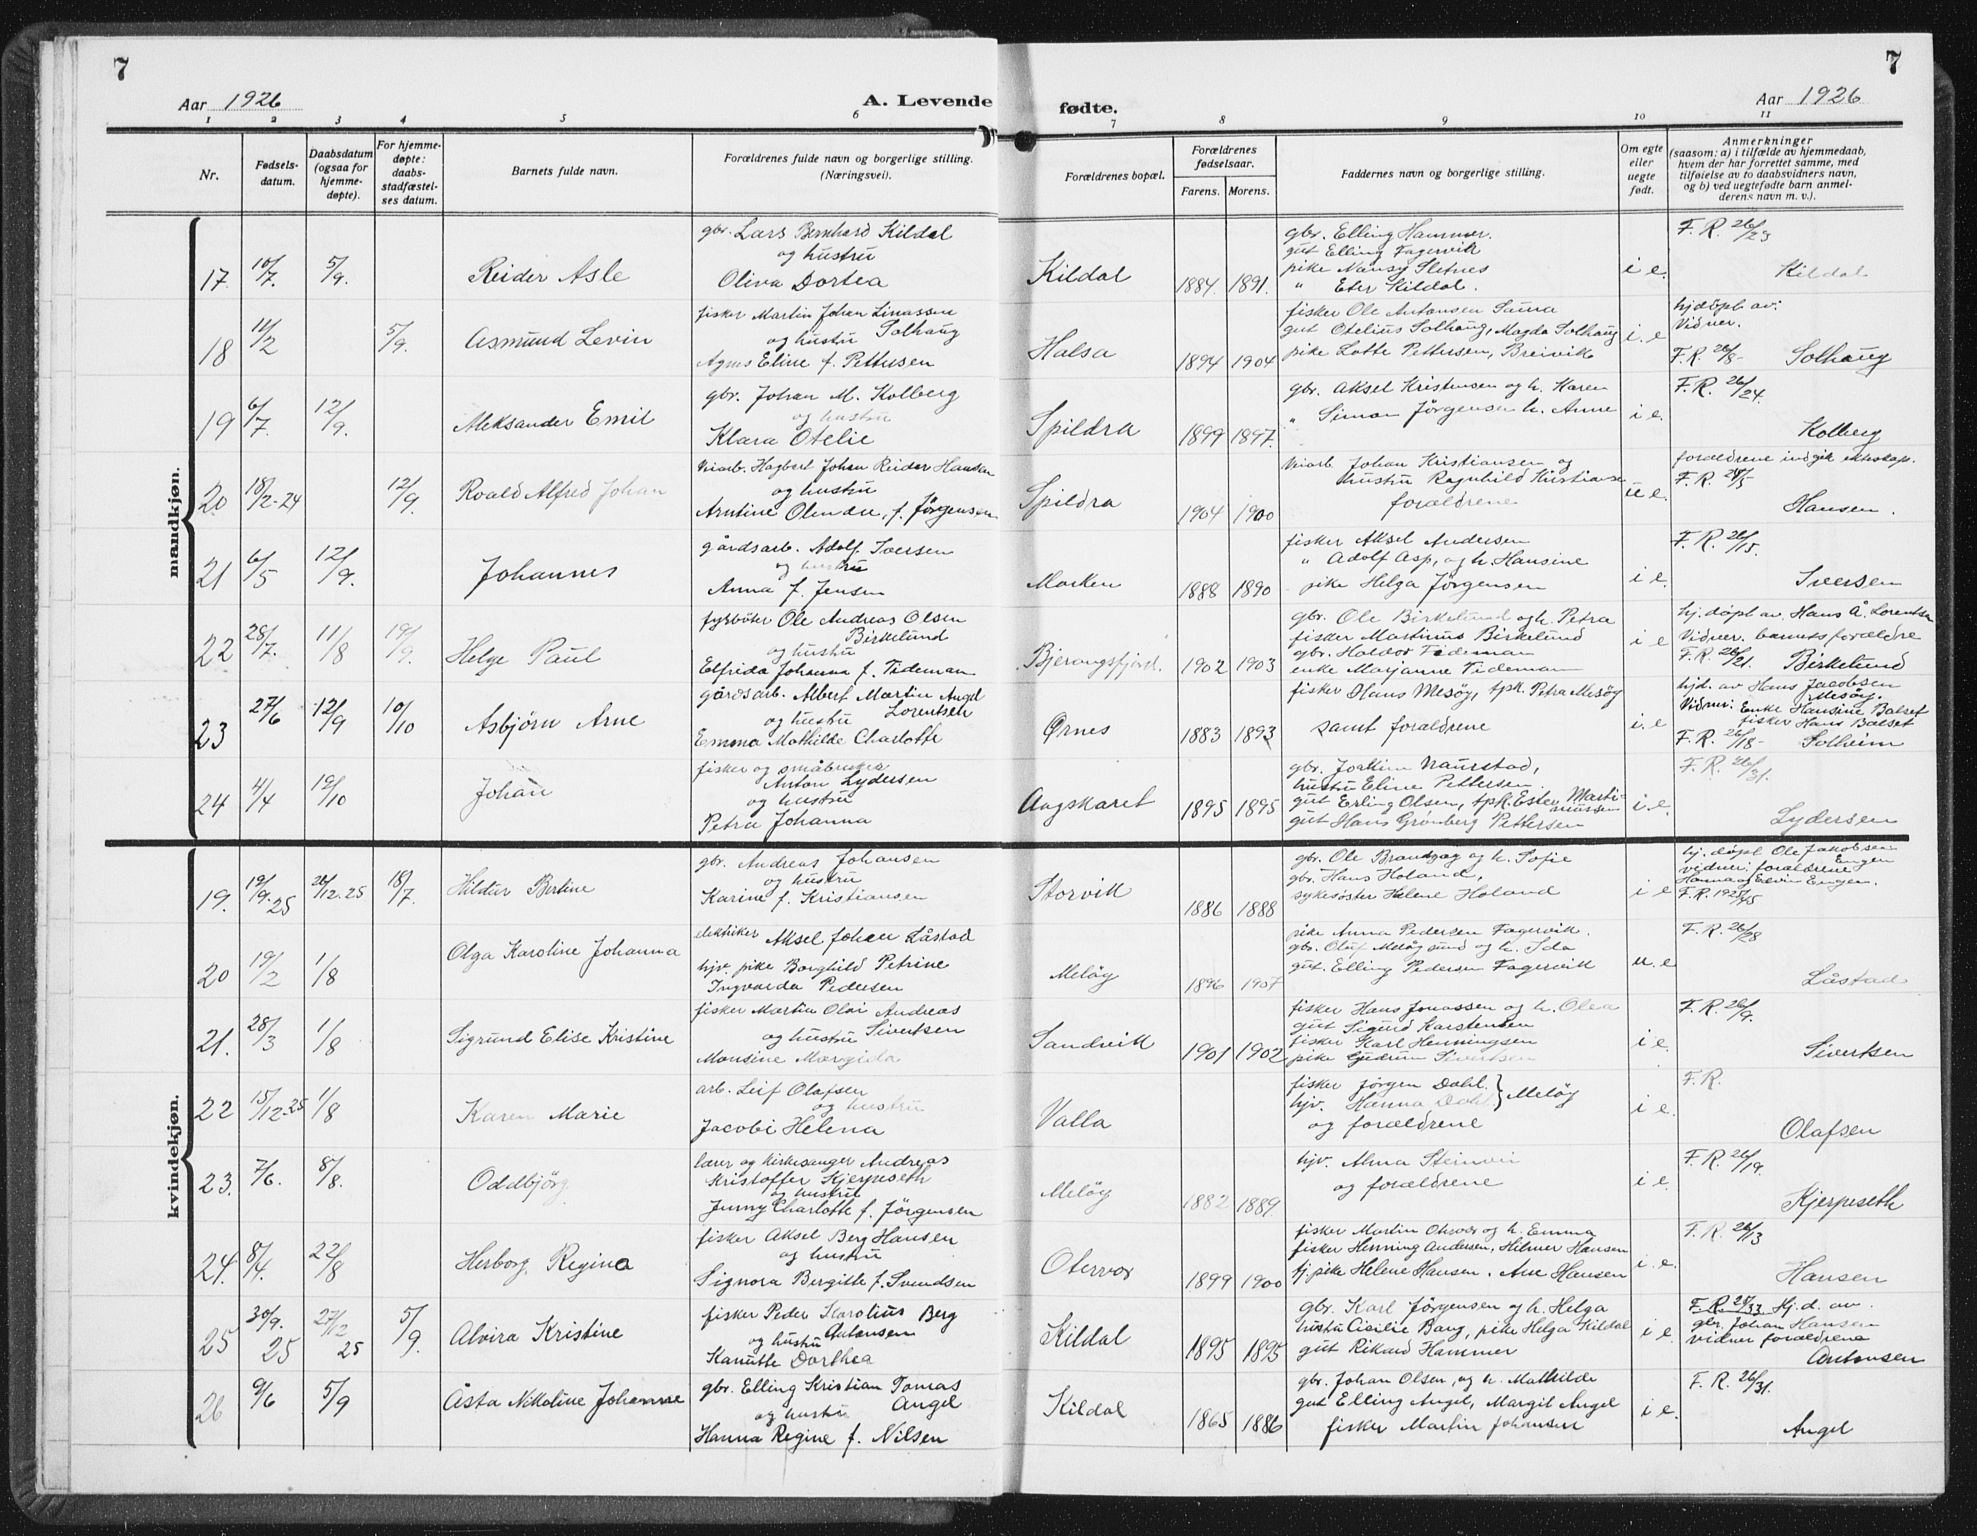 7
7
Aar 1926
A. Levende
fødte.
Aar 1926
1 2 3 4 5 6 7 8 9 10 11
Nr.
Fødsels-
datum.
Daabsdatum
(ogsaa for
hjemme-
døpte).
For hjemme-
døpte:
daabs-
stadfæstel-
ses datum.
Barnets fulde navn.
Forældrenes fulde navn og borgerlige stilling.
(Næringsvei).
Forældrenes bopæl.
Forældrenes
fødselsaar.
Farens. Morens.
Faddernes navn og borgerlige stilling.
Om egte
eller
uegte
født.
Anmerkninger
(saasom: a) i tilfælde av hjemmedaab,
hvem der har forrettet samme, med
tilføielse av to daabsvidners navn,
og b) ved uegtefødte barn anmel-
derens navn m. v.).
mandkjøn.
17. 10/7. 5/9. Reider Asle
gbr. Lars Bernhard Kildal
og hustru
Oliva Dortea
Kildal 1884. 1891.
gbr. Elling Hammer.
gut Elling Fagervik
pike Nansy Sletnes
" Eter Kildal.
i e.
F. R. 26/23
Kildal
18 11/2 5/9. Asmund Levin
fisker Martin Johan Linassen
Solhaug
og hustru
Agnes Eline f. Pettersen
Halsa 1894 1904
fisker Ole Antonsen Sauna
gut Otelius Solhaug, Magda Solhaug
pike Lotte Pettersen, Breivik
i e
hjdöpt av:
Vidner.
F. R. 26/8- Solhaug
19 6/7. 12/9. Aleksander Emil
gbr. Johan M. Kolberg
og hustru
Klara Otelie
Spildra 1899 1897.
gbr. Aksel Kristensen og h. Karen
" Simon Jörgensen h. Anne
i e.
F. R. 26/24.
Kolberg
20 18/2-24 12/9. Roald Alfred Johan
Hagbart Johan Reidar Hansen
og hustru
Arntine Olendse, f. Jörgensen
Spildra 1904 1900
Johan Kristiansen og
hustru Ragnhild Kristiansen
forældrene
u e.
forældrene indgik ekteskap.
F. R. 24/5
Hansen.
21 6/5 12/9. Johannes
gårdsarb. Adolf Iversen
og hustru
Anna f. Jensen
Marken 1888 1890
fisker Aksel Andersen
" Adolf Asp, og h. Hansine
pike Helga Jörgensen
i e.
F. R. 26/15.
Iversen
22 28/7. 11/8 19/9. Helge Paul
fyrböter Ole Andreas Olsen
Birkelund
og hustru
Elfrida Johanna f. Tideman
Bjerangsfjord. 1902 1903
gbr. Ole Birkelund og h. Petra
fisker Martinus Birkelund
gbr. Haldor Tideman
enke Marjanne Tideman
i e
hj. döpt av Hans Å. Lorentsen
Vidner. barnets forældre
F. R. 26/21. Birkelund
23 27/6 12/9 10/10 Asbjörn Arne
gårdsarb. Albert Martin Angel
Lorentsen
og hustru
Emma Mathilde Charlotte
Ørnes 1883 1893
fisker Hans Mesöy, tpk. Petra Mesöy
samt forældrene
i. e
hjd. av Hans Jacobsen
Mesöy.
Vidner: Enke Hansine Balset
fisker Hans Balset
F. R. 26/18- Solheim
24 4/4 19/10 Johan
fisker og småbruker
Anton Lydersen
og hustru
Petra Johanna
Angskaret 1895 1895
gbr. Joakim Naurstad,
hustru Eline Pettersen
gut Erling Olsen, tpk. Ester Marti-
nussen
gut Hans Grönberg Pettersen
i. e.
F. R. 26/31.
Lydersen
kvindekjøn.
19. 19/9.25 26/12.25 18/7. Hildur Bertine
gbr. Andreas Johansen
og hustru
Karine f. Kristiansen
Storvik 1886 1888
gbr. Ole Brandzæg og h. Sofie
gbr. Hans Holand,
sykesöster Helene Holand
i e
hj. döpt Ole Jakobsen
Engen
vidner: forældrene
Hanna og Edvin Engen.
F. R. 1925/45
20 19/2 1/8 Olga Karoline Johanna
elektriker Aksel Johan Låstad
hjv. pike Borghild Petrine
Ingvarda Pedersen
Melöy 1896 1907
pike Anna Pedersen Fagervik.
gbr. Oluf Melöysund og h. Ida
gut. Elling Pedersen Fagervik
u. e
F. R. 26/28
Låstad
21. 28/3 1/8 Sigrund Elise Kristine
fisker Martin Olai Andreas
Sivertsen
og hustru
Monsine Margida
Sandvik 1901 1902
fisker Hans Jonassen og h. Olea
gut Sigurd Karstensen
fisker Karl Henningsen
pike Gudrun Sivertsen
i e.
F. R. 26/9.
Sivertsen
22 15/12-25 1/8 Karen Marie
arb. Leif Olafsen
og hustru
Jacobi Helena
Valla
fisker Jörgen Dahl.
hjv. Hanna Dahl } Melöy
og forældrene
i e.
F. R.
Olafsen
23. 7/6. 8/8. Oddbjörg
lærer og kirkesanger Andreas
Kristoffer Kjerpeseth
og hustru
Jenny Charlotte f. Jörgensen
Melöy 1882 1889.
hjv. Alma Steinvir
og forældrene
i e.
F. R. 26/19.
Kjerpeseth
24. 8/4. 22/8 Herborg Regina
fisker Aksel Berg Hansen
og hustru
Signora Bergitte f. Svendsen
Otervær 1899 1900
fisker Martin Olsvær og h. Emma
fisker Henning Andersen, Hilmer Hansen
hj. pike Helene Hansen. Ane Hansen
i e.
F. R. 26/13
Hansen
25 30/9. 25 27/12 25 5/9. Alvira Kristine
fisker Peder Karolius Berg
Antonsen
og hustru
Kanutte Dorthea
Kildal 1895 1895
gbr. Karl Jörgensen og h. Helga
hustru Cicilie Bang, pike Helga Kildal
gut Rikard Hammer
i e.
F. R. 25/33 Hj. d. av.
gbr. Johan Hansen
vidner forældrene
Antonsen
26 9/6 5/9 Åsta Nikoline Johanne
gbr. Elling Kristian Tomas
Angel
og hustru
Hanna Regine f. Nilsen
Kildal 1865 1886
gbr. Johan Olsen, og h. Mathilde
gut Elling Angel, Margit Angel
fisker Martin Johansen
i e.
F. R. 26/31.
Angel